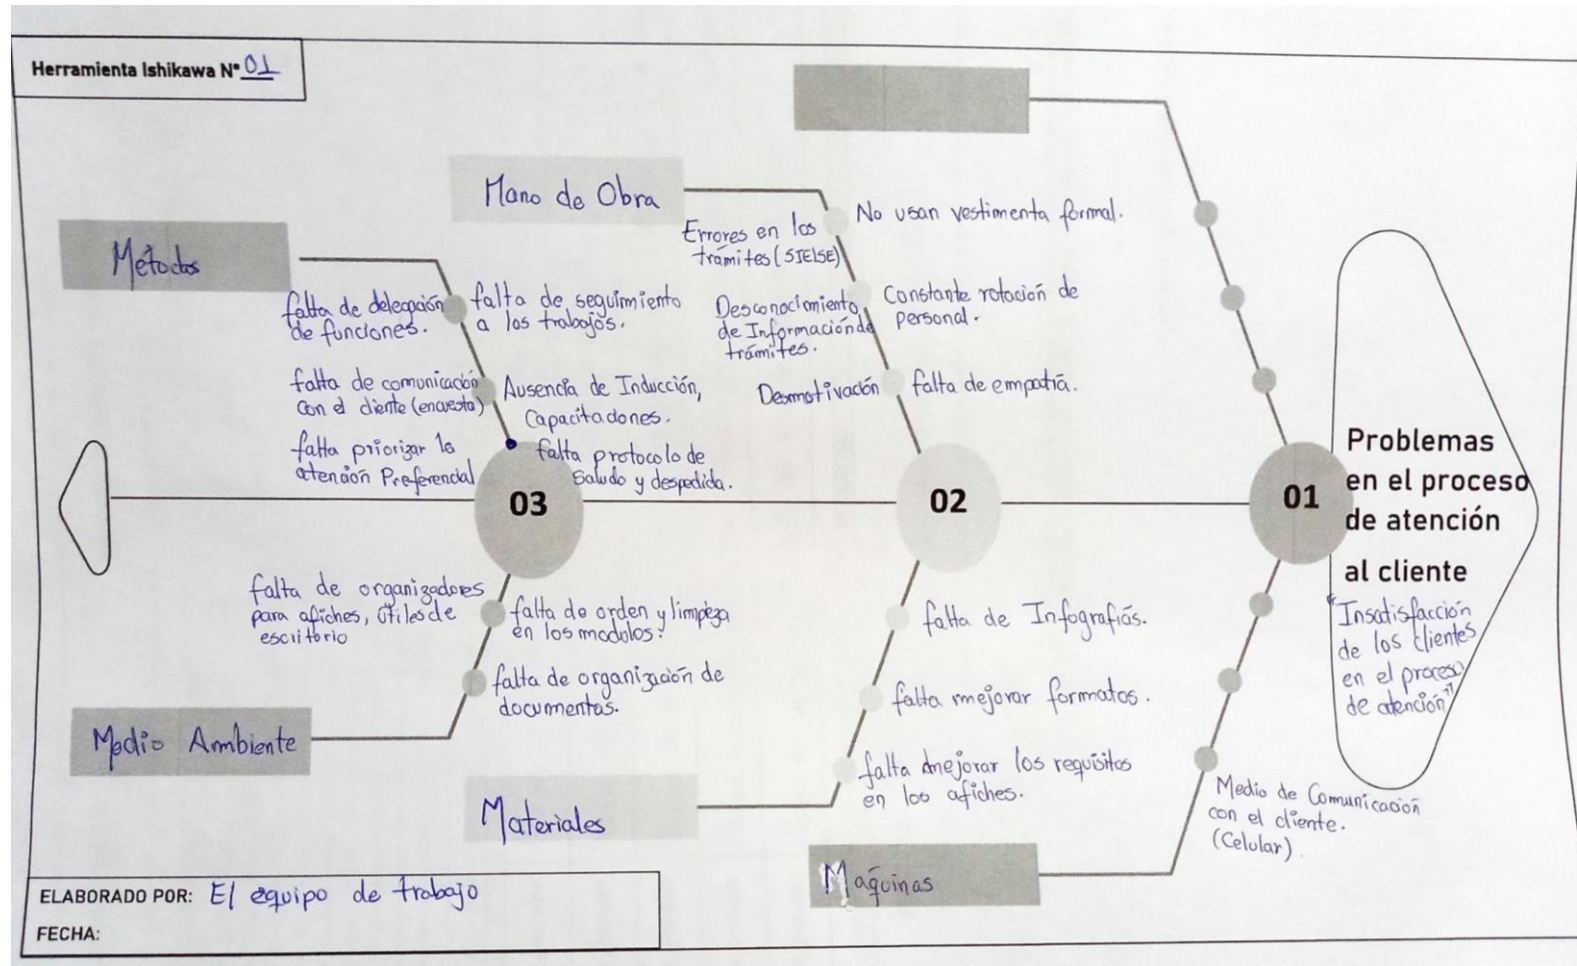 Herramienta Ishikawa N° 01
Mano de Obra
Métodos
No usan vestimenta formal.
Errores en los
trámites (SIELSE)
Constante rotación de
personal.
Desconocimiento
de Información de
trámites.
Desmotivación
falta de empatía.
falta de delegación
de funciones.
falta de seguimiento
a los trabajos.
falta de comunicación
con el cliente (encuesta)
Ausencia de Inducción,
Capacitaciones.
falta priorizar la
atención Preferencial
falta protocolo de
Saludo y despedida.
03
02
01
Problemas
en el proceso
de atención
al cliente
"Insatisfacción
de los clientes
en el proceso
de atención"
falta de organizadores
para afiches, útiles de
escritorio
falta de orden y limpieza
en los modulos.
falta de organización de
documentos.
Medio Ambiente
falta de Infografías.
falta mejorar formatos.
falta mejorar los requisitos
en los afiches.
Materiales
Medio de Comunicación
con el cliente.
(Celular).
Maquinas
ELABORADO POR: El equipo de trabajo
FECHA: